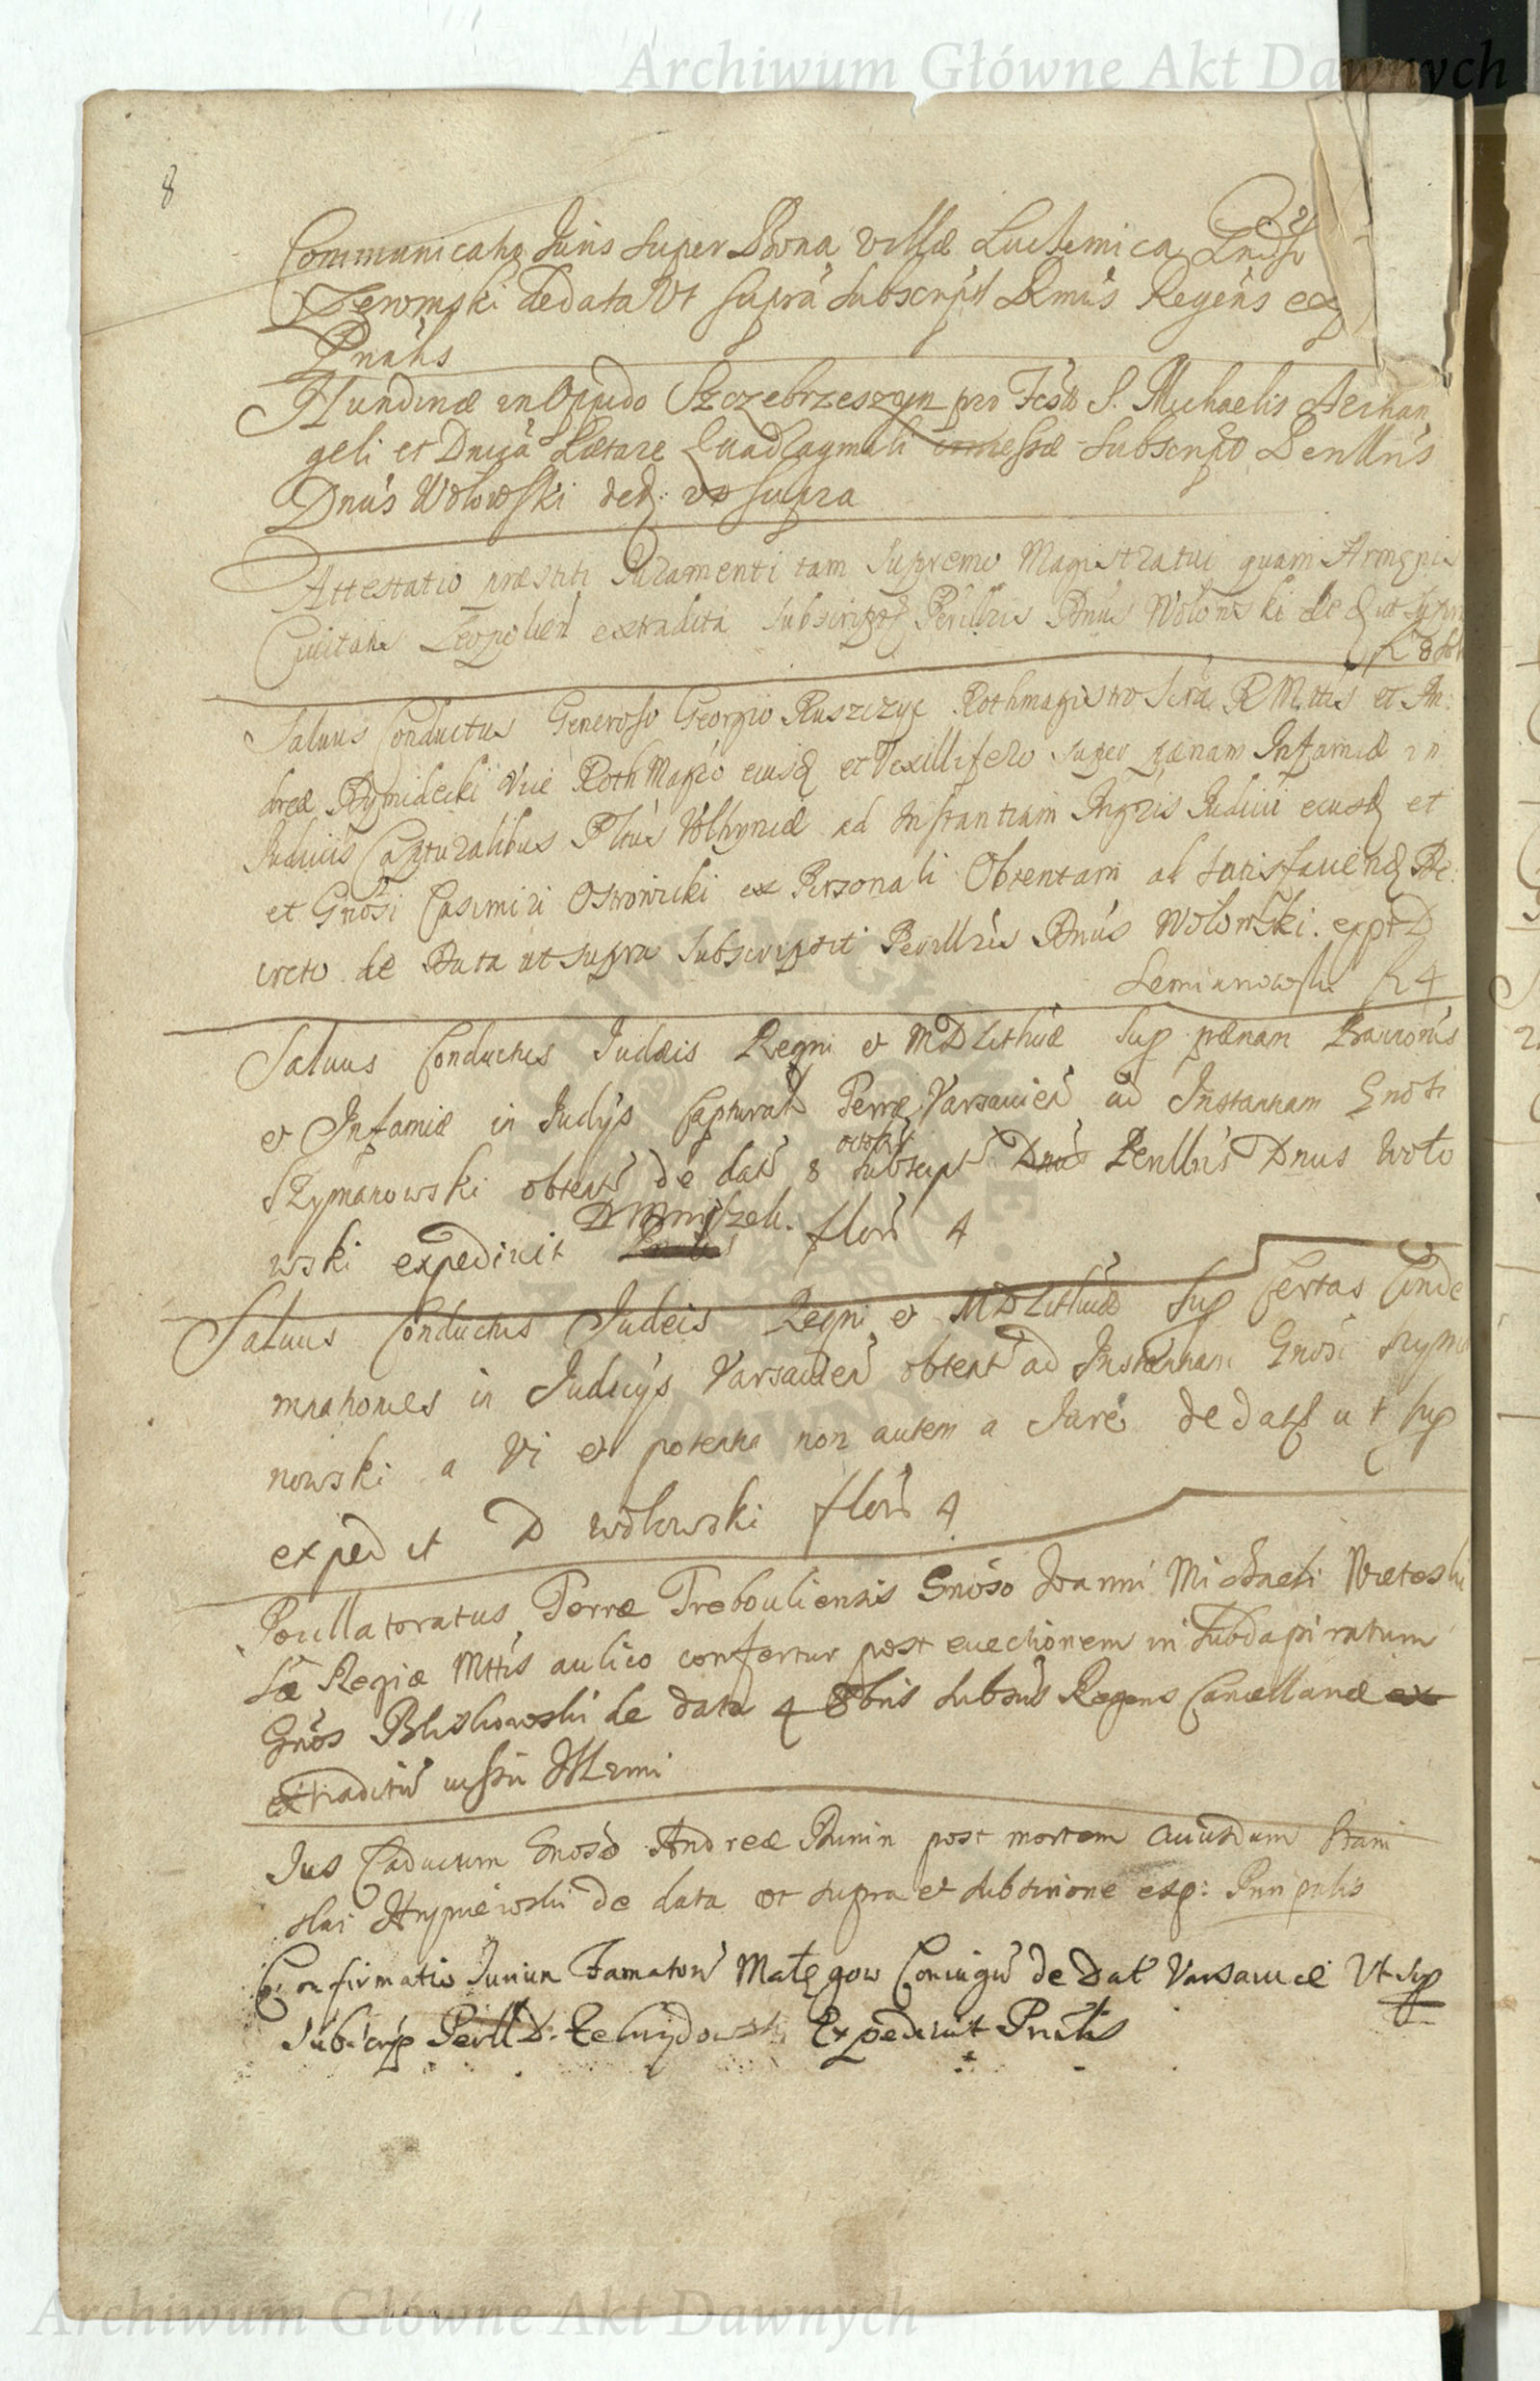 Archiwum Główne Akt Dawnych
8
Communicatio Juris super Bona villæ
Zeromski de data Ut supra subscripst Rmũs Regens exp
Pnałis
Nundinæ in Oppido Szczebrzeszyn pro Festo S. Michaelis Archan
geli et Dnicà Lætare Quadragmali subscripsit Perillris
Dnũs Wołowski ded: ut supra
Attestatio præstiti Juramenti tam Supremo Magistratui quam Armenis
Civitatis Leopolień extradita subscripst Perillris Dnũs Wołowski de d ut supra
Saluus Conductus Generoso Georgio Ruszczyc Rothmagistro Scrae R Mttis et An:
dreæ Vice RothMagro eiusd et Vexillifero super pænam Infamiæ in
Judiciis Capturalibus Pltũs Volhyniæ ad Instantiam Ingris Judicii eiusd et
et Gnosi Casimiri ex Personali Obtentam ad satisfaciend De:
creto de Data ut supra subscripsit Perillris Dnũs Wołowski. exptD
Semianowski fl 4
Saluus Conductus Judæis Regni et MDLithuæ Sup pænam Bannonis
et Infamiæ in Judijs Capturał Terræ Varsauień ad Instantiam Gnosi
octobris
Szymanowski obtent de dat 8 subscript Dnũs Perillris Dnus Woło
DMniszek.
wski expediuit flor 4
Saluus Conductus Judeis Regni et MDLithuæ Sup Certas Conde
mnationes in Judicijs Varsauień obtent ad Instantiam Gnosi Szyma
nowski a Vi et potentia non autem a Jure de dat ut sup
exped it D Wołowski flor 4
Pocillatoratus Terræ Trebouliensis Gnoso Joanni Michaeli
Sæ Regiæ Mttis aulico confertur post euectionem in subdapiratum
Gnos de data 4 8bris subsũs Regens Cancellariæ ex
extraditũ iussu
Jus Caducum Gnoso Andreæ Bunin post mortem cuiusdam Stani
slai de data ut supra et subscrione exp: Prinpalis
Confirmatio Jurium Famatorũ Coniugũ de Dat Varsauiæ Ut sup
Subscrip Perill D. Expediuit Pnałis
Archiwum Główne Akt Dawnych